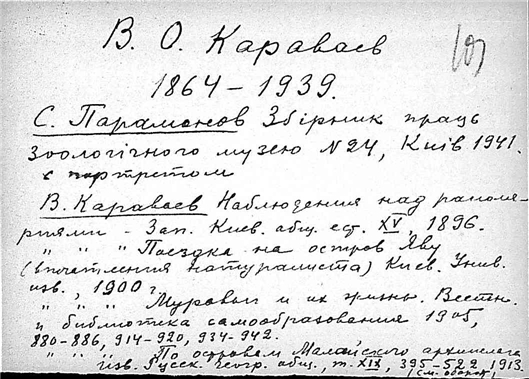 В. О. Караваев
1864 – 1939.
С. Парамонов Збірник праць
зоологічного музею N 24, Київ 1941.
с портретом
В. Караваев Наблюдения над радиоля-
риями – Зап. Киев. общ. ест. XV, 1896.
" " " Поездка на остров Яву
(впечатления натуралиста) Киев. Унив.
изв., 1900 г.
" " " Муравьи и их жизнь. Вестн.
и библиотека самообразования 1905,
880-886, 914-920, 934-942.
" " " По островам Малайского архипелага
Изв. Русск. геогр. общ., т. XIX, 395-522, 1913.
(см. оборот)